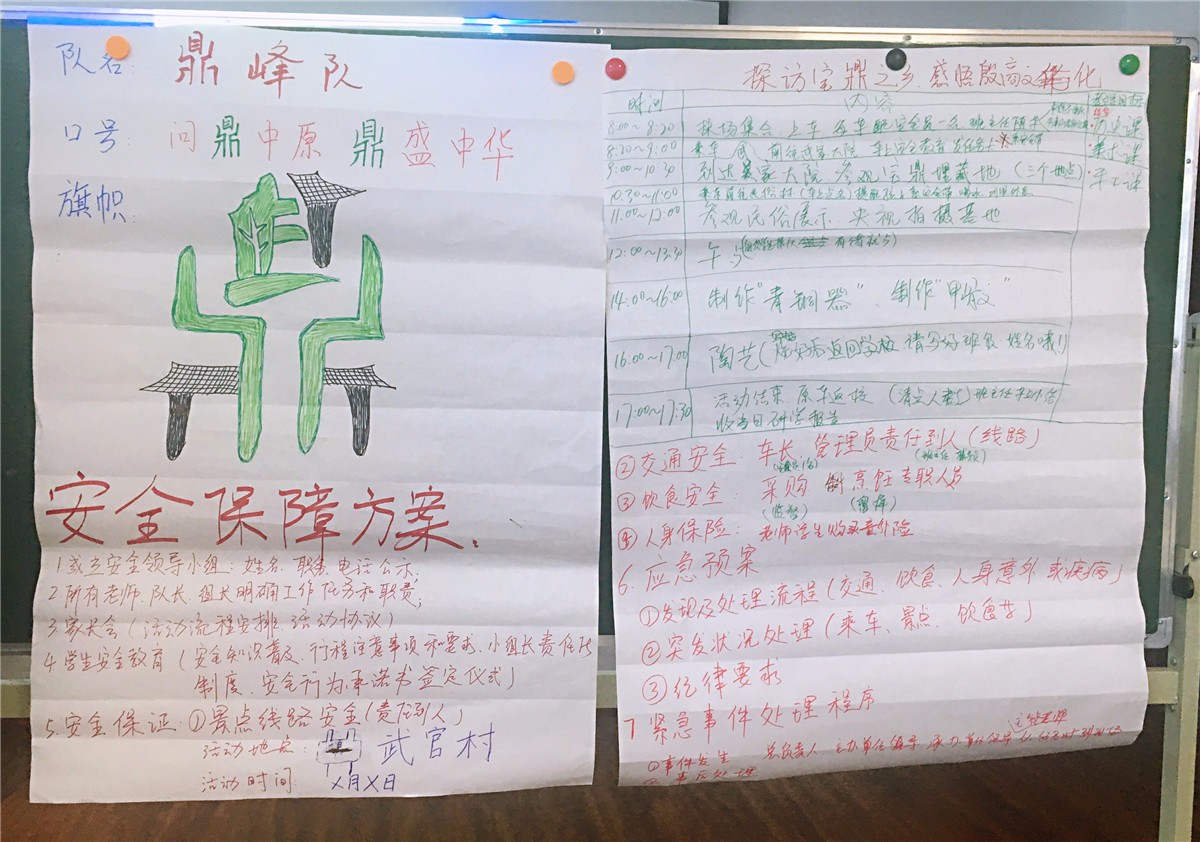 队名: 鼎峰队
口号: 问鼎中原 鼎盛中华
旗帜:
安全保障方案:
1 成立安全领导小组: 姓名、职务、电话公示;
2 所有老师、队长、组长明确工作任务和职责;
3 家长会(活动流程安排、活动协议)
4 学生安全教育(安全知识普及、行程注意事项和要求、小组长责任
制度、安全行为承诺书签定仪式)
5 安全保证: ①景点线路安全(责任到人)
活动地点: 武官村
活动时间: X月X日
探访宝鼎之乡 感悟殷商文化
时间 内容
8:00~8:20 操场集合 上车
历史课
8:20~9:00 乘车 前往吴家大院
美术课
9:00~10:30 到达吴家大院 参观宝鼎埋藏地(三个地点)
手工课
10:30~11:00 乘车前往民俗村
11:00~12:00 参观民俗展示 央视拍摄基地
12:00~13:30 午
14:00~16:00 制作"青铜器"、制作"甲骨文"
16:00~17:00 陶艺( 返回学校 请写好班级 姓名哦!)
17:00~17:30 活动结束 原车返校 (清点人数)
收当日研学报告
②交通安全: 车长、管理员责任到人(线路)
③饮食安全: 采购 烹饪专职人员
(监督) (留样)
④人身保险: 老师学生购买意外险
6. 应急预案
①发现及处理流程(交通、饮食、人身意外或疾病)
②突发状况处理(乘车、景点、饮食等)
③纪律要求
7 紧急事件处理程序
①事件发生 总负责人